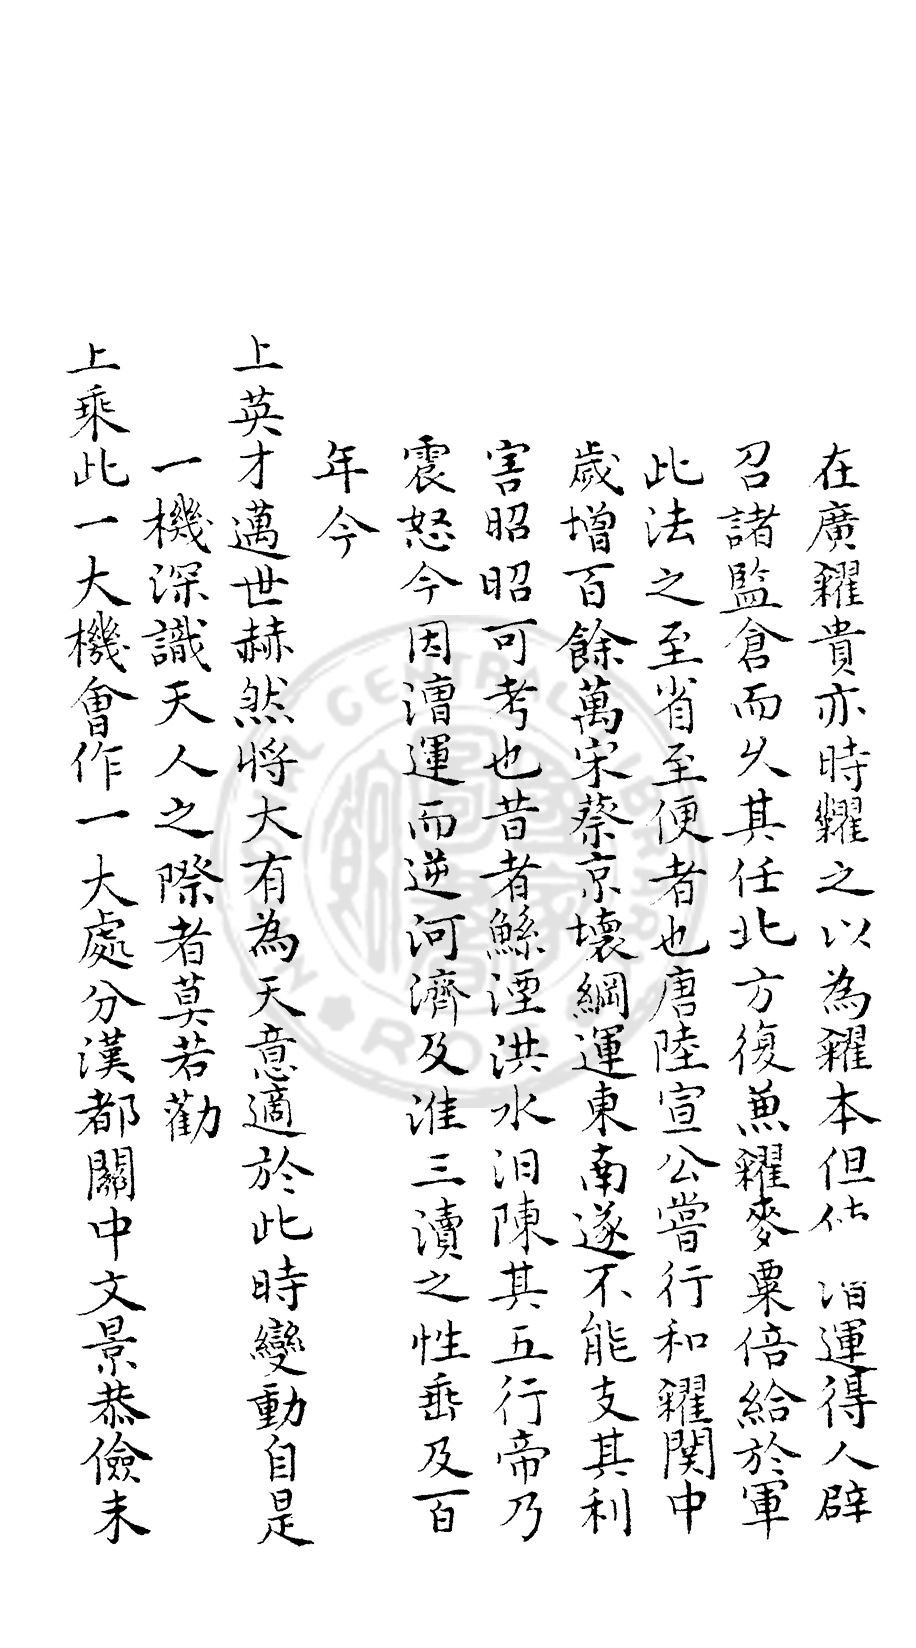 在廣糴貴亦時糶之以為糴本但運得人辟
召諸監倉而乆其任北方復兼糴麥粟倍給於軍
此法之至省至便者也唐陸宣公嘗行和糴関中
歲增百餘萬宋蔡京壞綱運東南遂不能支其利
害昭昭可考也昔者鯀湮洪水汨陳其五行帝乃
震怒今因漕運而逆河濟及淮三瀆之性垂及百
年今
上英才邁世赫然將大有為天意適於此時變動自是
一機深識天人之際者莫若勸
上乘此一大機會作一大處分漢都關中文景恭儉未